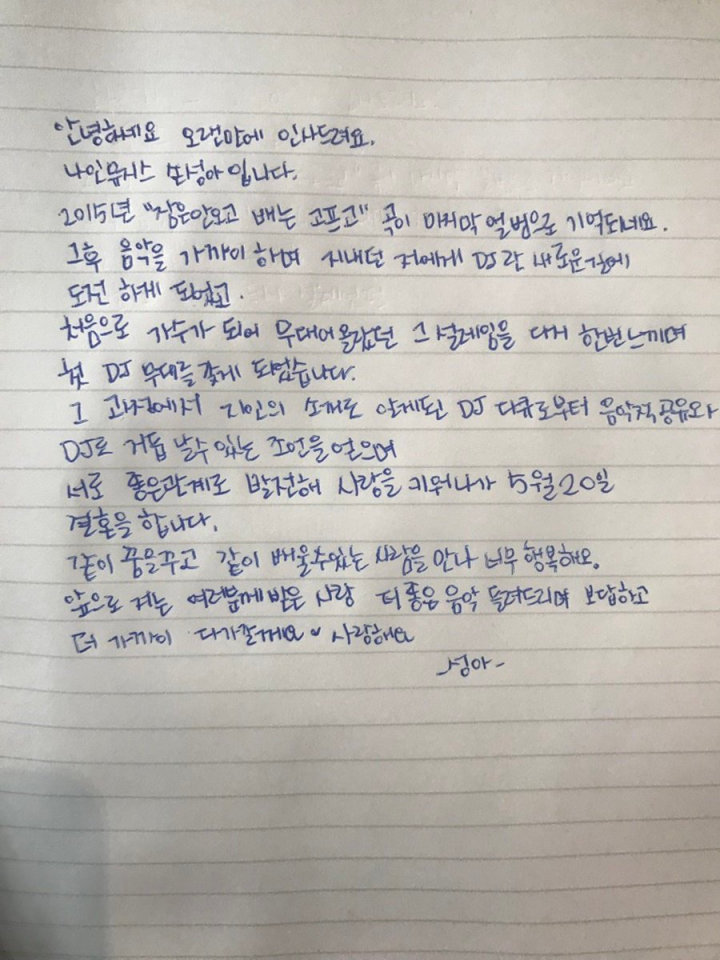 안녕하세요 오랜만에 인사드려요.
나인뮤지스 손성아입니다.
2015년 "잠은안오고 배는 고프고" 곡이 마지막 앨범으로 기억되네요.
그후 음악을 가까이 하며 지내던 저에게 DJ란 새로운직에
도전 하게 되었고.
처음으로 가수가 되어 무대에 올랐던 그 설레임을 다시 한번느끼며
첫 DJ 무대를 갖게 되었습니다.
그 과정에서 지인의 소개로 알게된 DJ 다큐로부터 음악적공유와
DJ로 거듭 날수 있는 조언을 얻으며
서로 좋은관계로 발전해 사랑을 키워나가 5월20일
결혼을 합니다.
같이 꿈을꾸고 같이 배울수있는 사람을 만나 너무 행복해요.
앞으로 저는 여러분께 받은 사랑 더 좋은 음악 들려드리며 보답하고
더 가까이 다가갈께요♥ 사랑해요
성아-